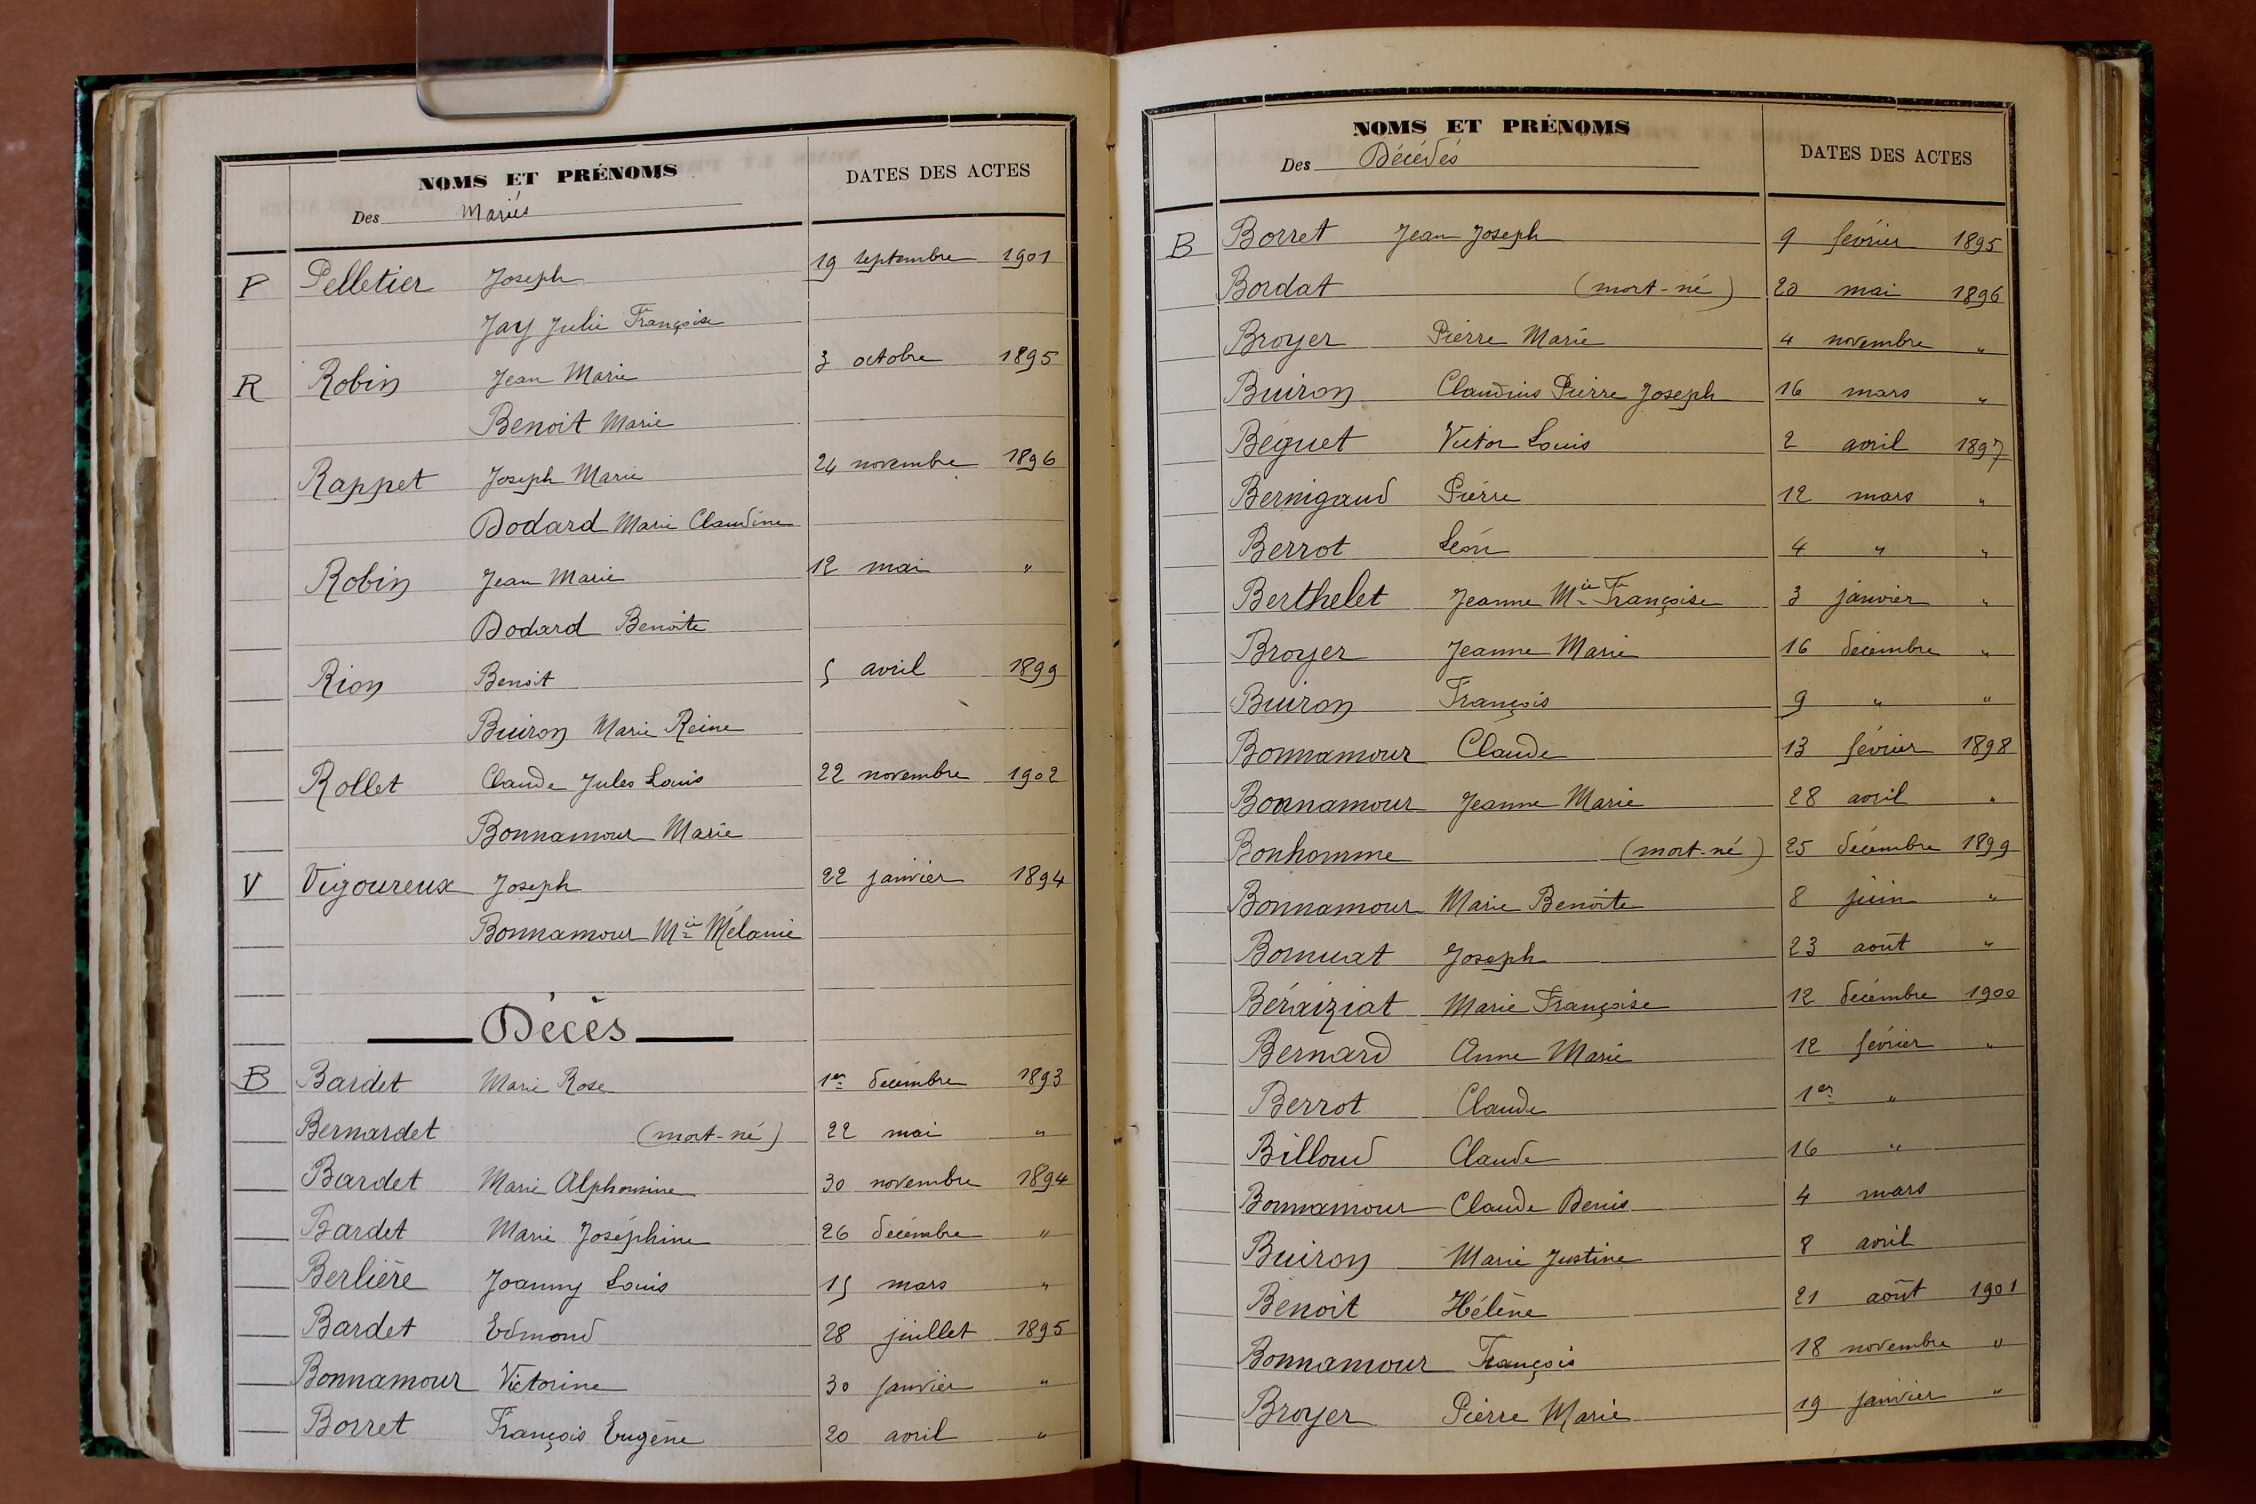 NOMS ET PRÉNOMS
Des Mariés
DATES DES ACTES
P Pelletier Joseph 19 septembre 1901
Jay Julie Françoise
R Robin Jean Marie 3 octobre 1895
Benoit Marie
Rappet Joseph Marie 24 novembre 1896
Dodard Marie Claudine
Robin Jean Marie 12 mai "
Dodard Benoîte
Rion Benoit 5 avril 1899
Buiron Marie Reine
Rollet Claude Jules Louis 22 novembre 1902
Bonnamour Marie
V Vigoureux Joseph 22 janvier 1894
Bonnamour Mie Mélanie
Décès
B Bardet Marie Rose 1er décembre 1893
Bernardet (mort-né) 22 mai "
Bardet Marie Alphonsine 30 novembre 1894
Bardet Marie Joséphine 26 décembre "
Berlière Joanny Louis 15 mars "
Bardet Edmond 28 juillet 1895
Bonnamour Victorine 30 janvier "
Borret François Eugène 20 avril "
NOMS ET PRÉNOMS
Des Décédés
DATES DES ACTES
B Borret Jean Joseph 9 février 1895
Bordat (mort-né) 20 mai 1896
Broyer Pierre Marie 4 novembre "
Buiron Claudius Pierre Joseph 16 mars "
Béguet Victor Louis 2 avril 1897
Bernigaud Pierre 12 mars "
Berrot Léon 4 " "
Berthelet Jeanne Mie Françoise 3 janvier "
Broyer Jeanne Marie 16 décembre "
Buiron François 9 " "
Bonnamour Claude 13 février 1898
Bonnamour Jeanne Marie 28 avril "
Bonhomme (mort-né) 25 décembre 1899
Bonnamour Marie Benoîte 8 juin "
Bornuat Joseph 23 août "
Béraiziat Marie Françoise 12 décembre 1900
Bernard Anne Marie 12 février "
Berrot Claude 1er "
Billoud Claude 16 "
Bonnamour Claude Denis 4 mars
Buiron Marie Justine 8 avril
Benoit Hélène 21 août 1901
Bonnamour François 18 novembre "
Broyer Pierre Marie 19 janvier "